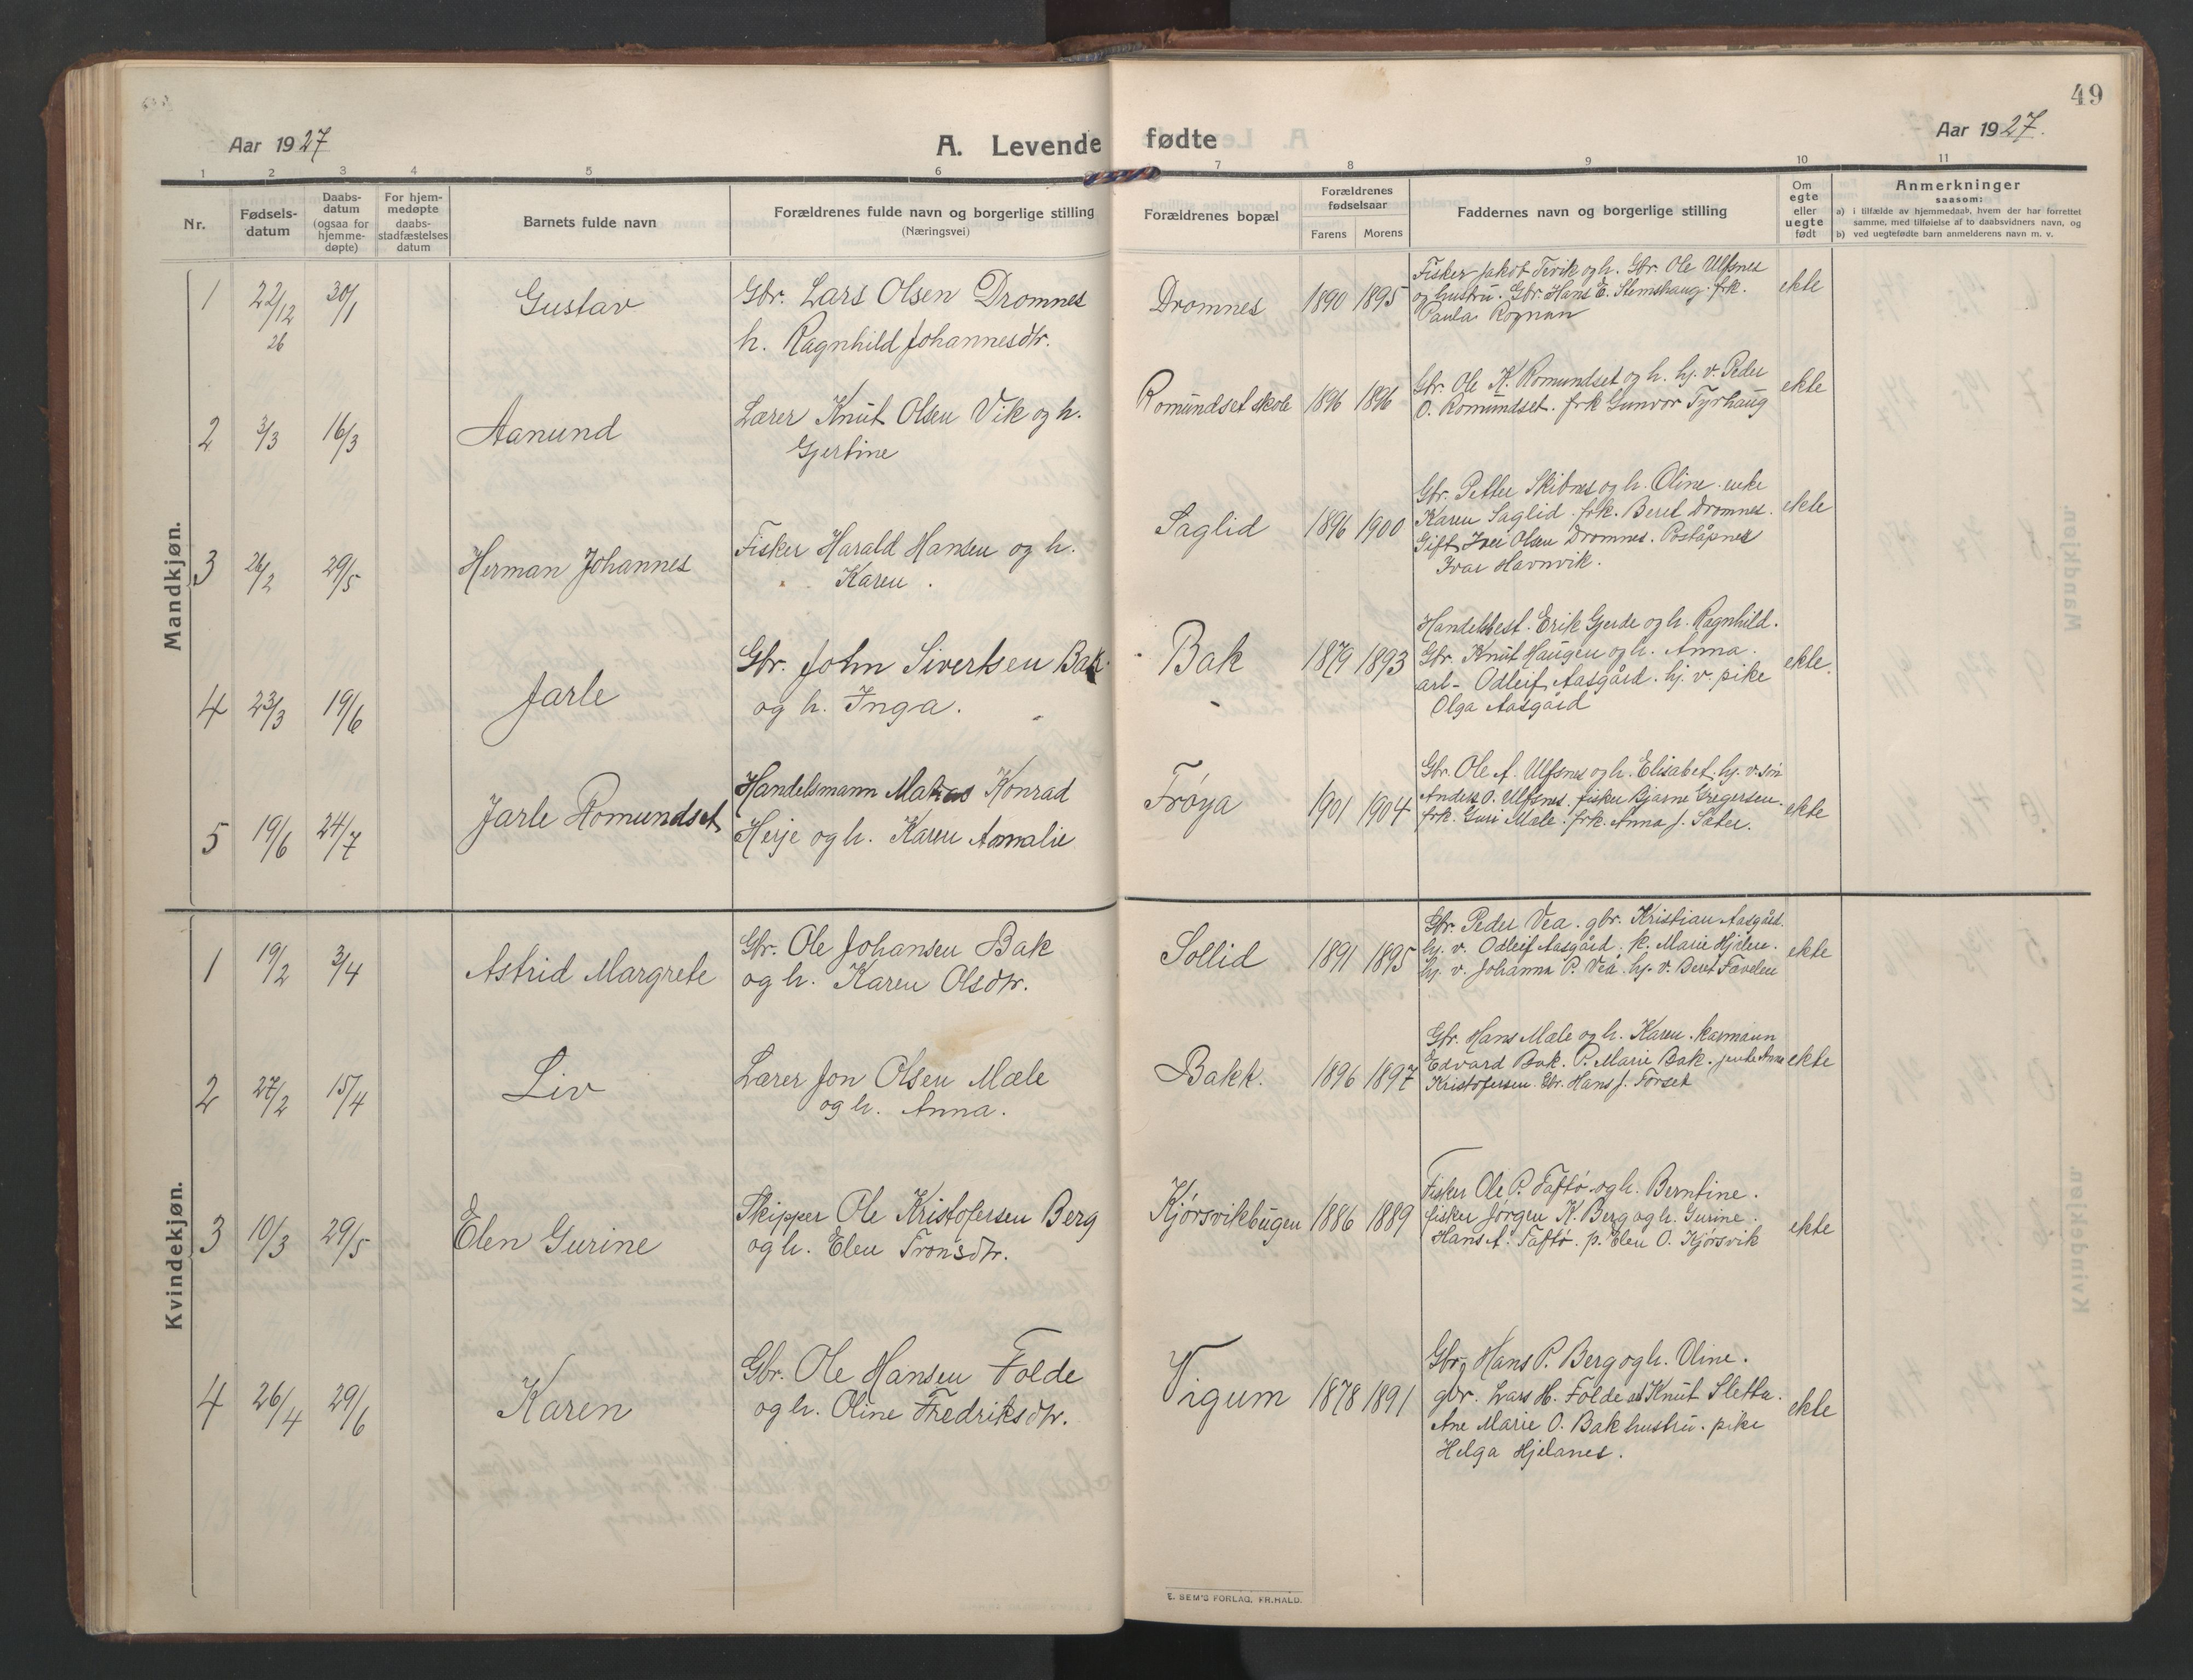 49
Aar 1927
A. Levende fødte
Aar 1927.
1 2 3 4 5 6 7 8 9 10 11
Nr.
Fødsels-
datum
Daabs-
datum
(ogsaa for
hjemme-
døpte)
For hjem-
medøpte
daabs-
stadfæstelses
datum
Barnets fulde navn
Forældrenes fulde navn og borgerlige stilling
(Næringsvei)
Forældrenes bopæl
Forældrenes
fødselsaar
Farens Morens
Faddernes navn og borgerlige stilling
Om
egte
eller
uegte
født
Anmerkninger
saasom:
a) i tilfælde av hjemmedaab, hvem der har forrettet
samme, med tilføielse af to daabsvidners navn, og
b) ved uegtefødte barn anmelderens navn m. v.
Mandkjøn.
1 22/12 26 30/1 Gustav
Gbr. Lars Olsen Dromnes
h. Ragnhild Johannesdtr.
Dromnes 1890 1895
Fisker Jakob Tevik og h. Gbr. Ole Ulfsnes
og hustru. Gbr. Hans E. Stemshaug. frk.
Paula Rognan
ekte
2 3/3 16/3 Aanund
Lærer Knut Olsen Vik og h.
Gjertine
Romundset skole 1896 1896
Gbr. Ole K. Romundset og h. hj. v. Peder
O. Romundset. frk Gunvor Tyrhaug
ekte
3 26/2 29/5 Herman Johannes
Fisker Harald Hansen og h.
Karen.
Saglid 1896 1900
Gbr. Petter Skibnes og h. Oline. enke
Karen Saglid. frk. Beret Dromnes.
Gift Iver Olsen Dromnes. Poståpner
Ivar Havnvik.
ekte
4 23/3 19/6 Jarle
Gbr. John Sivertsen Bak
og h. Inga.
Bak 1879 1893
Handelsbest. Erik Gjerde og h. Ragnhild.
Gbr. Knut Haugen og h. Anna.
arb. Odleif Aasgård. hj. v. pike
Olga Aasgård
ekte.
5 19/6 24/7 Jarle Romundset
Handelsmann Matias Konrad
Herje og h. Karen Annalie
Frøya 1901 1904
Gbr. Ole A. Ulfsnes og h. Elisabet. hj. v. søn
Anders O. Ulfsnes. fisker Bjarne Gregersen.
frk. Guri Mæle. frk. Anna J. Sæter.
ekte
Kvindekjøn.
1 19/2 3/4 Astrid Margrete
Gbr. Ole Johansen Bak
og h. Karen Olsdtr.
Sollid 1891 1895
Gbr. Peder Vea. gbr. Kristian Aasgård.
hj. v. Odleif Aasgård. p. Marie Hjelen.
hj. v. Johanna P. Vea. hj. v. Beret Favelen
ekte
2 27/2 15/4 Liv
Lærer Jon Olsen Mæle
og h. Anna.
Bakk. 1896 1897
Gbr. Hans Mæle og h. Karen. karmann
Edvard Bak. P. Marie Bak. jente Anna
Kristofersen. Gbr. Hans J. Forset
ekte
3 10/3 29/5 Elen Gurine
Skipper Ole Kristofersen Berg
og h. Elen Tronsdtr.
Kjørsvikbugen 1886 1889
Fisker Ole P. Taftø og h. Berntine.
fisker Jørgen K. Berg og h. Gurine.
Hans A. Taftø. p. Elen O. Kjørsvik
ekte
4 26/4 29/6 Karen
Gbr. Ole Hansen Folde
og h. Oline Fredriksdtr.
Vigum 1878 1891
Gbr. Hans P. Berg og h. Oline.
gbr. Lars H. Folde Knut Sletta.
Ane Marie O. Bak hustru. pike
Helga Hjelanes.
ekte
E. SEM'S FORLAG, FR.HALD.